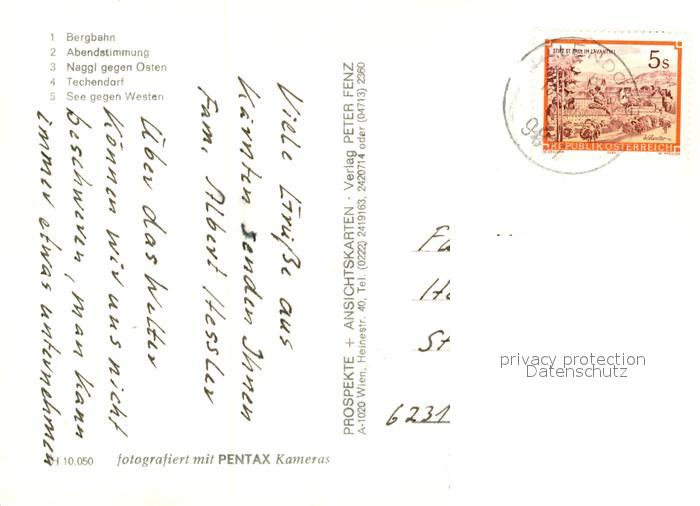 1 Bergbahn
2 Abendstimmung
3 Naggl gegen Osten
4 Techendorf
5 See gegen Westen
Viele Grüße aus
Kärnten senden Ihnen
Fam. Albert Hessler
Über das Wetter
können wir uns nicht
beschweren, man kann
immer etwas unternehmen
H 10.050
fotografiert mit PENTAX Kameras
PROSPEKTE + ANSICHTSKARTEN · Verlag PETER FENZ
A-1020 Wien, Heinestr. 40, Tel. (0222) 2419163, 2420714 oder (04713) 2360
STIFT ST. PAUL IM LAVANTTAL
5 S
REPUBLIK ÖSTERREICH
Fa
Ha
St
6231
privacy protection
Datenschutz